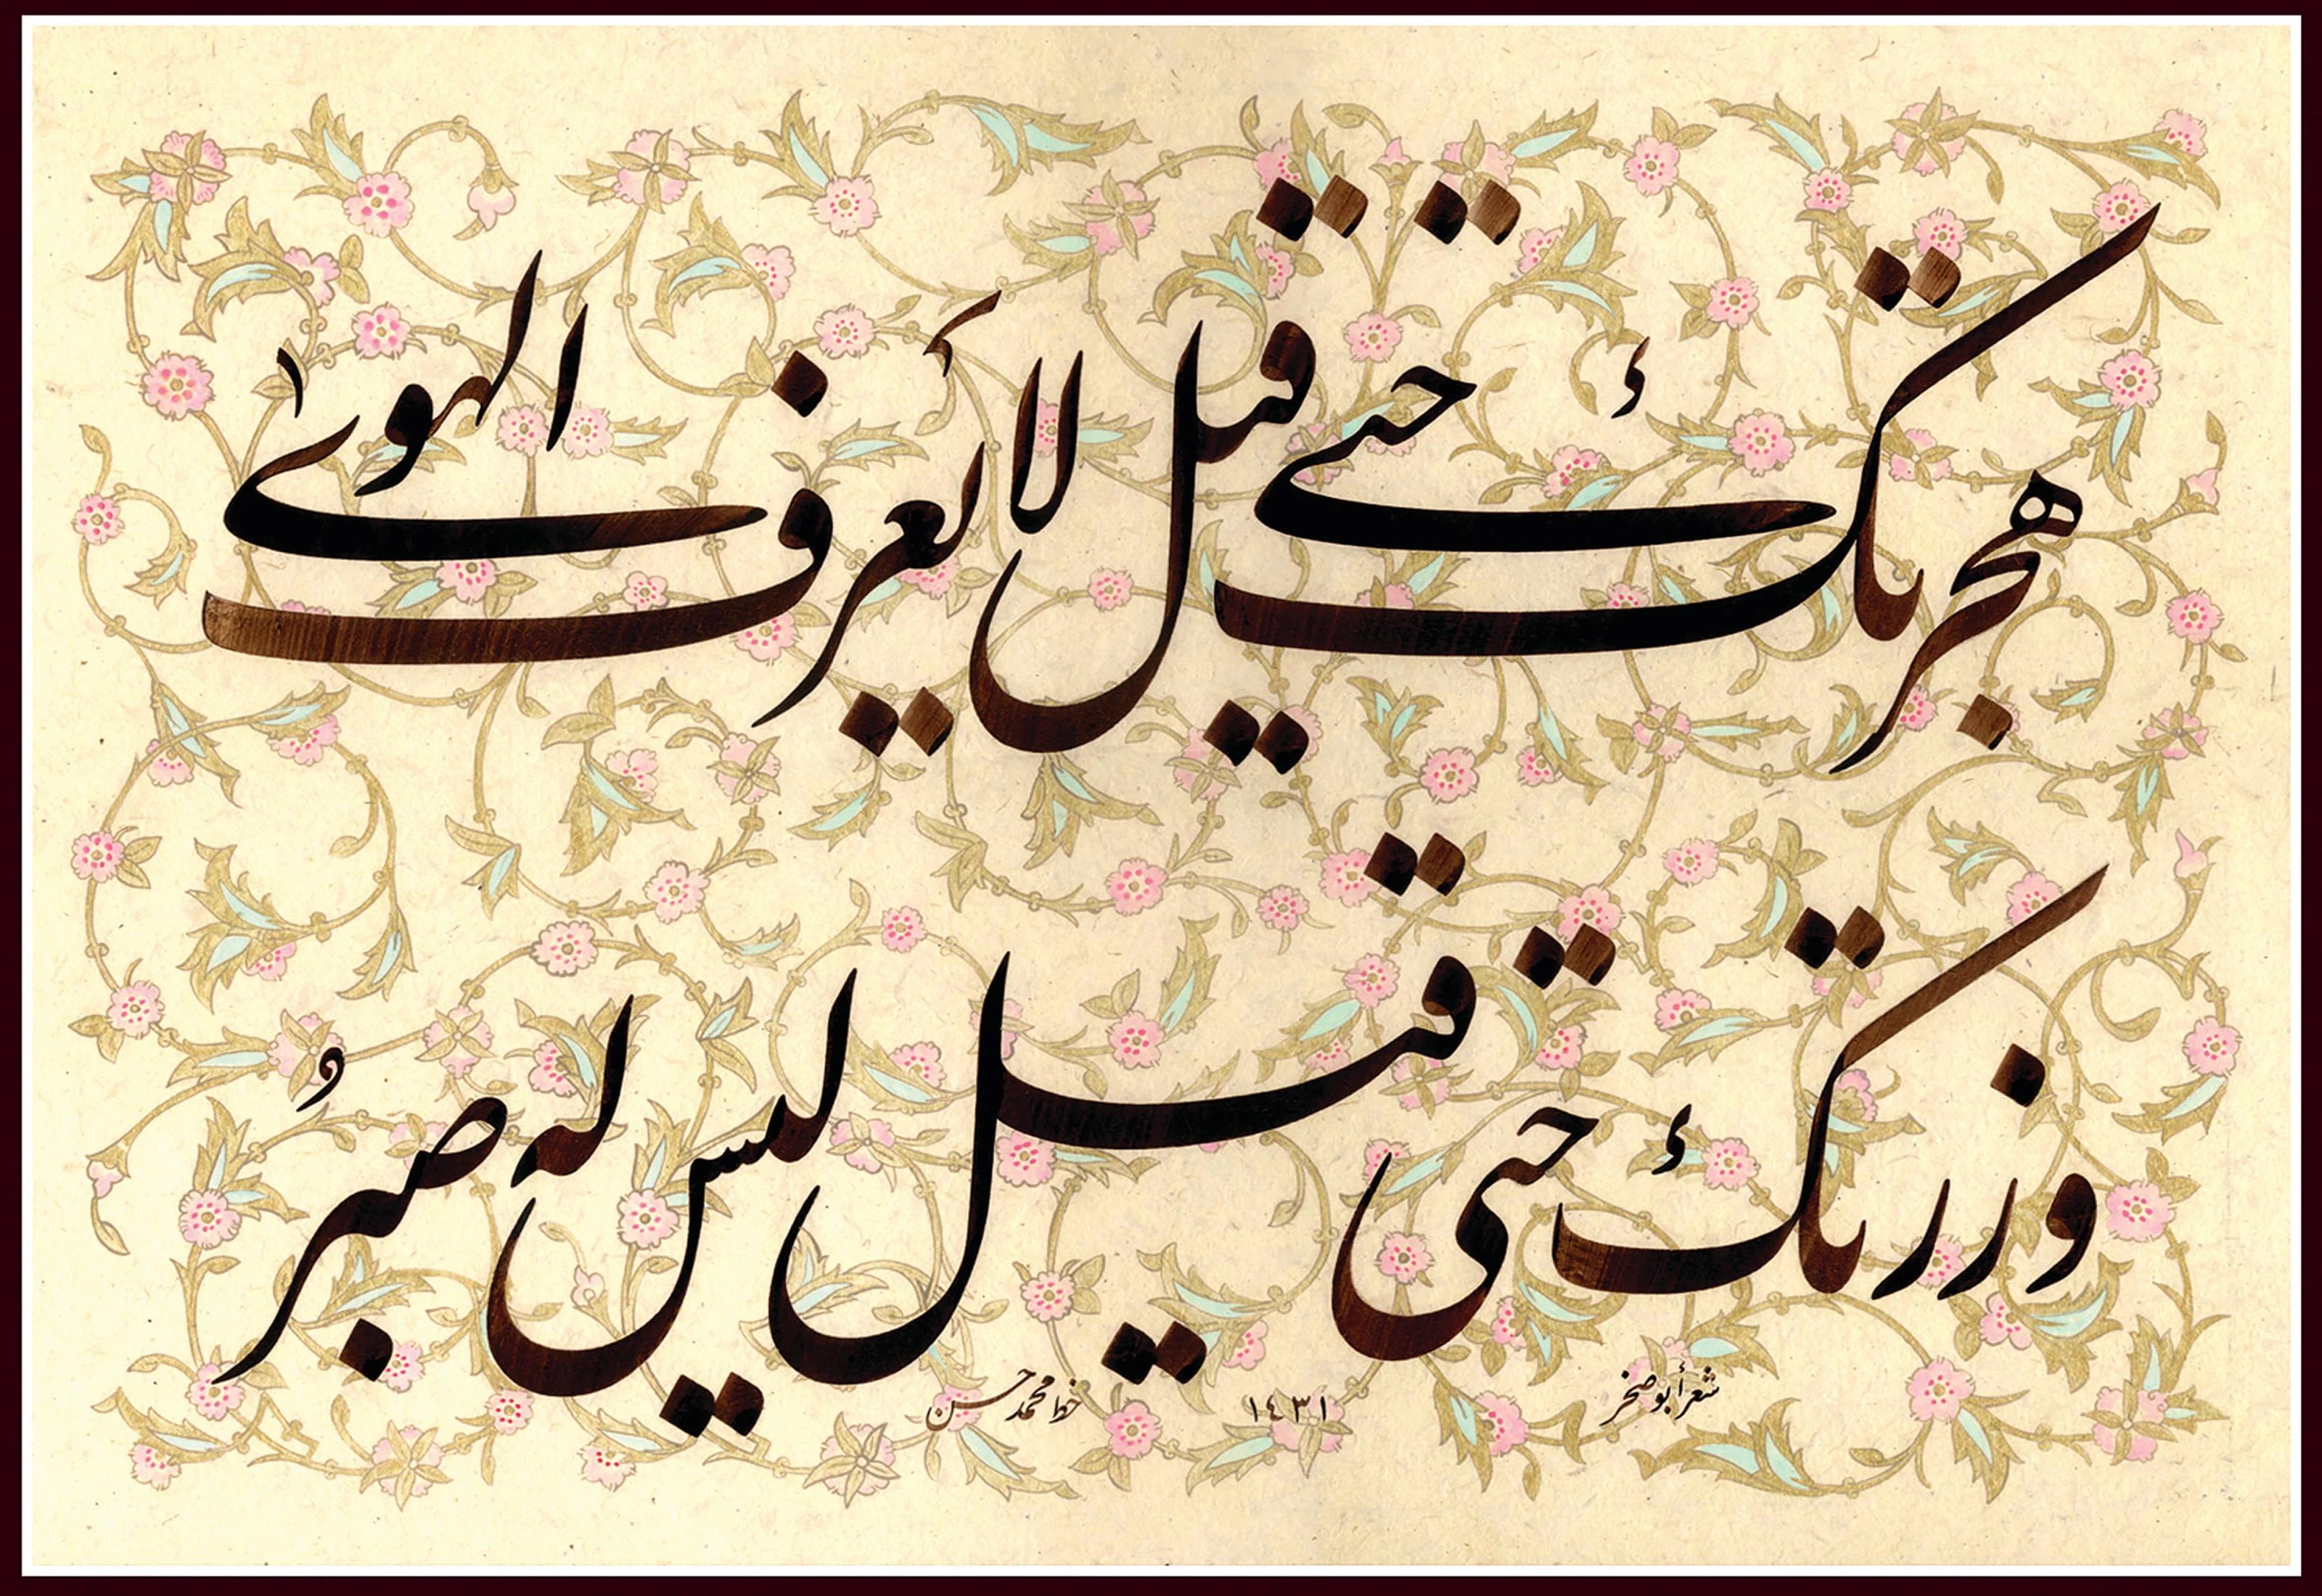 هجرتك حتى قيل لا يعرف الهوى
وزرتك حتى قيل ليس له صبرُ
شعر أبو صخر ١٤٣١ خط محمد حسن